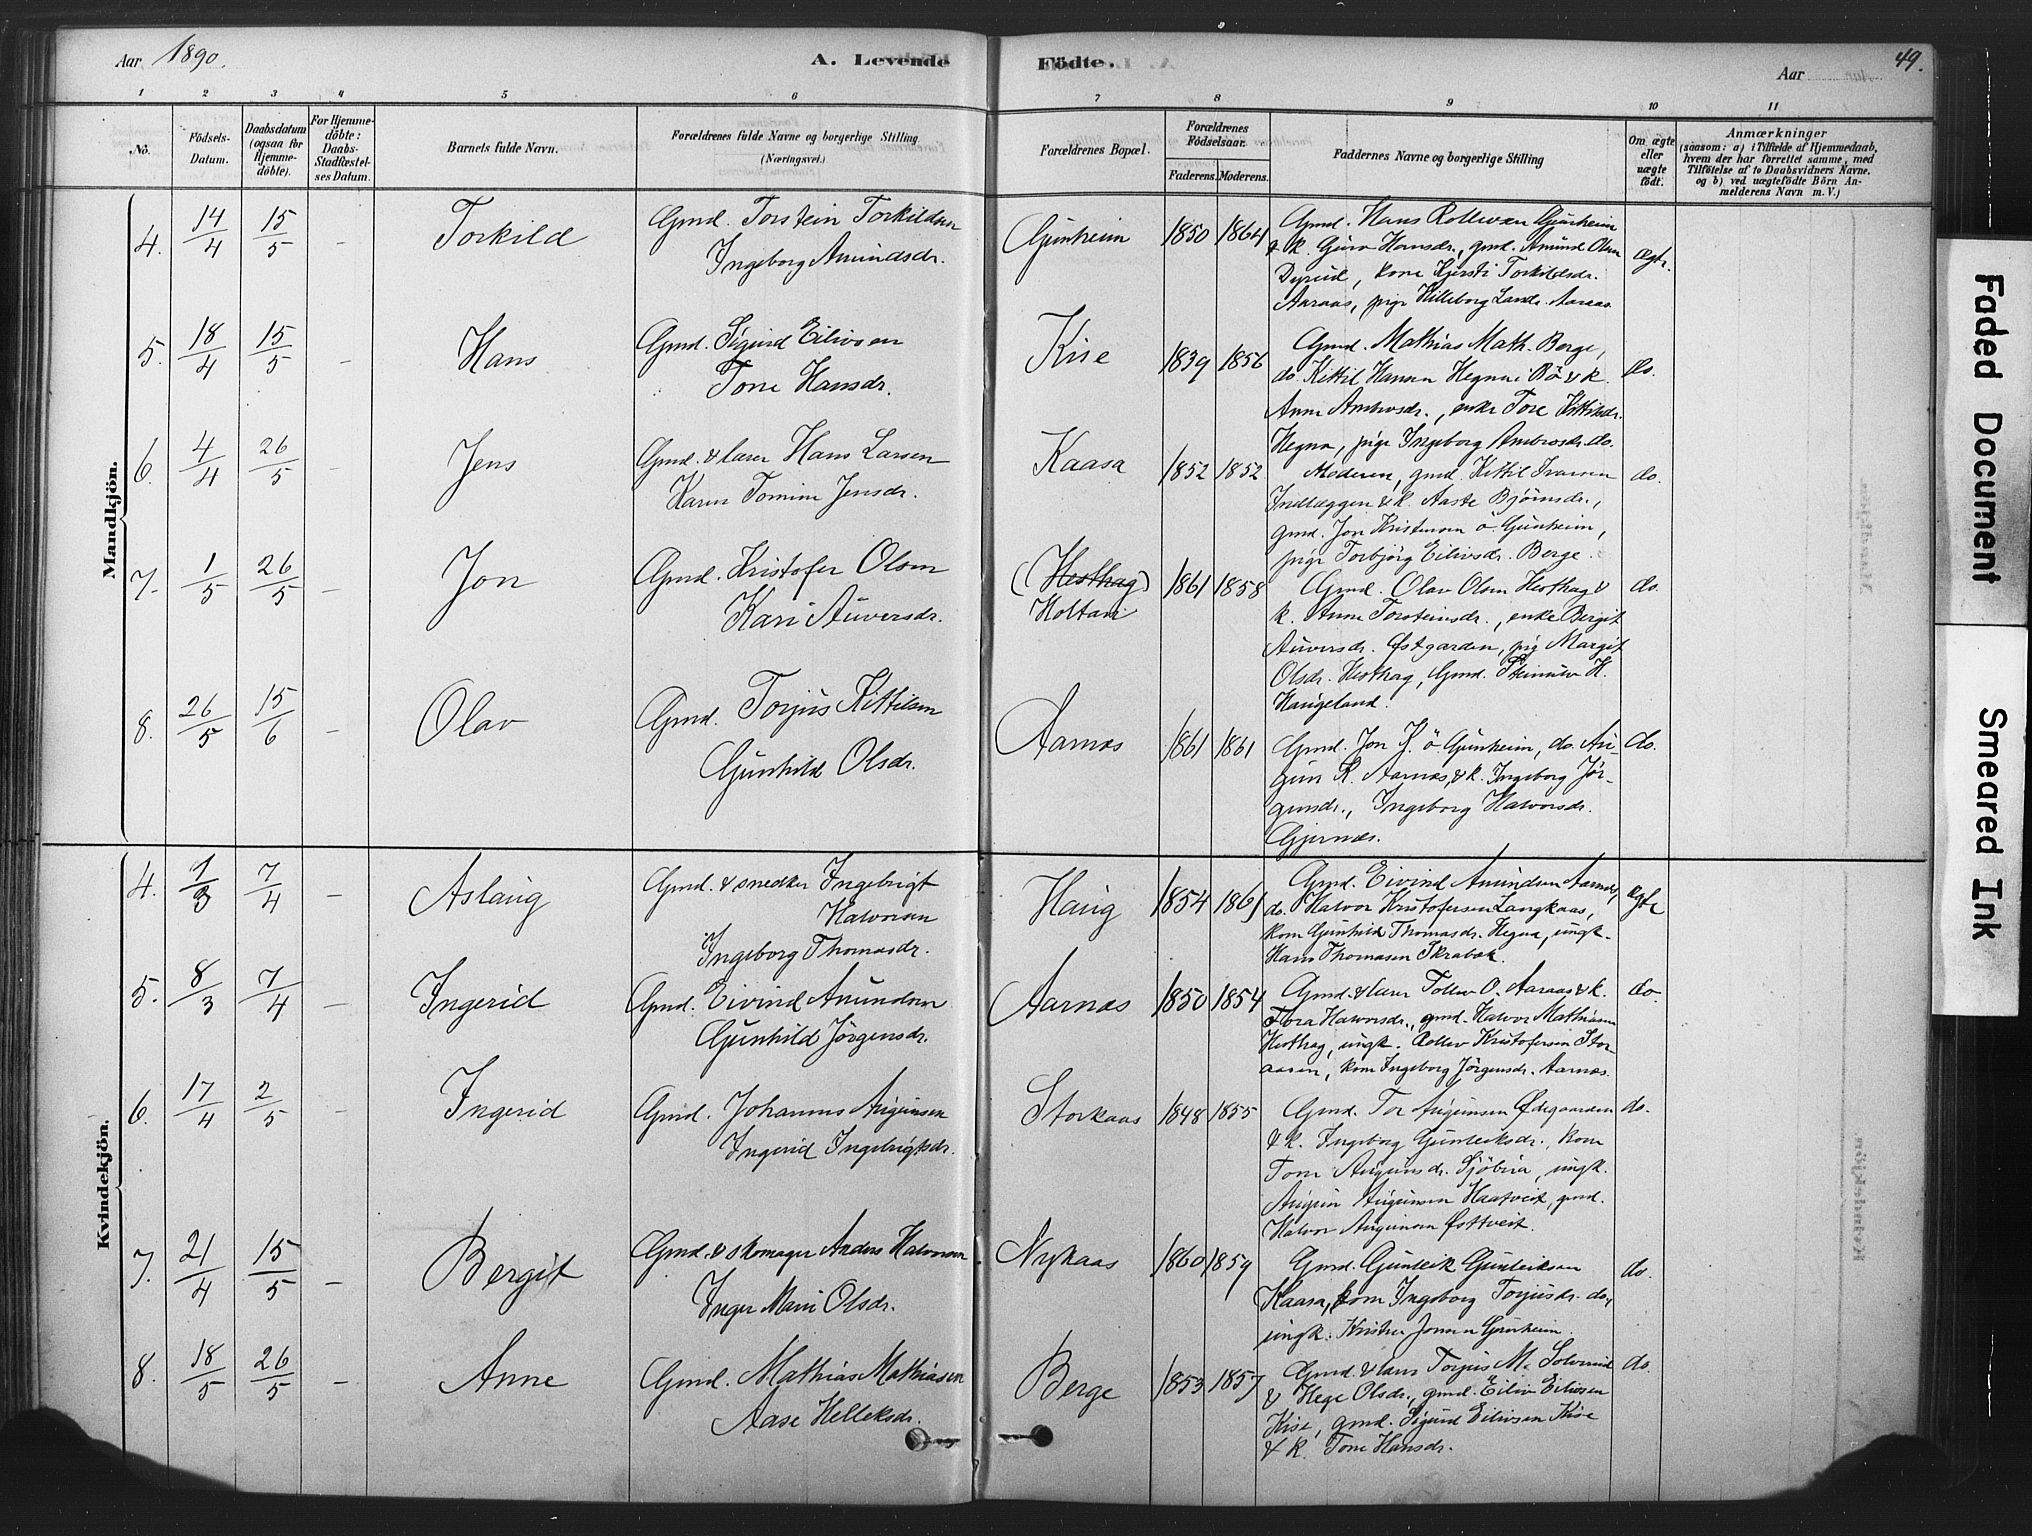 Aar 1890.
A. Levende Födte.
Aar
49.
1 2 3 4 5 6 7 8 9 10 11
No.
Födsels-Datum.
Daabsdatum (ogsaa for Hjemme-döbte).
For Hjemme-döbte: Daabs-Stadfæstel-ses Datum.
Barnets fulde Navn.
Forældrenes fulde Navne og borgerlige Stilling (Næringsvei.)
Forældrenes Bopæl.
Forældrenes Födselsaar.
Faderens. Moderens.
Faddernes Navne og borgerlige Stilling
Om ægte eller uægte födt.
Anmærkninger
(saasom: a) i Tilfælde af Hjemmedaab,
hvem der har forrettet samme, med
Tilföielse af to Daabsvidners Navne,
og b) ved uægtefödte Börn An-
melderens Navn m. V.)
Mandkjön.
4. 14/4 15/5 - Torkild
Gmd. Torstein Torkildsen
Ingeborg Amundsdr.
Gunheim 1850 1864
Gmd. Hans Rollevsen Gunheim
& k. Guro Hansdr., gmd. Amund Olsen
Dyrud, kone Kjersti Torkildsdr.
Aaraas, pige Hilleborg Landr. Aaraas
ægte.
5. 18/4 15/5 - Hans
Gmd. Sigurd Eilivsen
Tone Hansdr.
Kise 1839 1856
Gmd. Mathias Math. Berge,
do. Kittil Hansen Hegna i Bö & k.
Anne Ambrosdr., enke Tore Kittilsdr.
Hegna, pige Ingeborg Ambrosdr. do.
do.
6. 4/4 26/5 - Jens
Gmd. & lærer Hans Larsen
Karen Tomine Jensdr.
Kaasa 1852 1852
Moderen, gmd. Kittil Ivarsen
Indlæggen & k. Aaste Bjørnsdr.,
gmd. Jon Kristensen ö. Gunheim,
pige Torbjørg Eilivsdr. Berge.
do.
7. 1/5 26/5 - Jon
Gmd. Kristofer Olsen
Kari Auversdr.
(Hesthag)
Holtan 1861 1858
Gmd. Olav Olsen Hesthag &
k. Anne Torsteinsdr., enke Bergit
Auversdr. Østgarden, pig Margit
Olsdr. Hesthag, Gmd. Steinulv H.
Haugeland.
do.
8. 26/5 15/6 - Olav
Gmd. Torjus Kittilsen
Gunhild Olsdr.
Aarnæs 1861 1861
Gmd. Jon K. ö. Gunheim, do. Au-
gun K. Aarnæs, & k. Ingeborg Jør-
gensdr., Ingeborg Halvorsdr.
Gjernæs.
do.
Kvindekjön.
4. 1/3 7/4 - Aslaug
Gmd. & snedker Ingebrigt
Halvorsen
Ingeborg Thomasdr.
Haug 1854 1861
Gmd. Eivind Amundsen Aarnæs,
do. Halvor Kristofersen Langkaas,
kone Gunhild Thomasdr. Hegna, ungk.
Hans Thomasen Skrabæk.
ægte
5. 8/3 7/4 - Ingerid
Gmd. Eivind Amundsen
Gunhild Jörgensdr.
Aarnæs 1850 1854
Gmd. & lærer Tollev O. Aaraas & k.
Tora Halvorsdr., gmd. Halvor Mathiasen
Hesthag, ungk. Rollev Kristofersen Stor-
aasen, kone Ingeborg Jörgensdr. Aarnæs.
do.
6. 17/4 2/5 - Ingerid
Gmd. Johannes Augunsen
Ingerid Ingebrigtsdr.
Storkaas 1848 1855
Gmd. Tor Augunsen Ødegaarden
& k. Ingeborg Gunleiksdr., kone
Tone Augunsdr. Sjöbua, ungk.
Augun Augunsen Haatveit, gmd.
Halvor Augunsen Østtveit.
do.
7. 21/4 15/5 - Bergit
Gmd. & skomager Anders Halvorsen
Inger Marie Olsdr.
Nykaas 1860 1859
Gmd. Gunleik Gunleiksen
Kaasa, kone Ingeborg Torjusdr. do,
ungk. Kristen Jonsen Gunheim.
do.
8. 18/5 26/5 - Anne
Gmd. Mathias Mathiasen
Aase Helleksdr.
Berge 1853 1857
Gmd. & lærer Torjus M. Solverud
& Hege Olsdr., gmd. Eiliv Eilivsen
Kise, gmd. Sigurd Eilivsen Kise
& k. Tone Hansdr.
do.
Faded Document
Smeared Ink